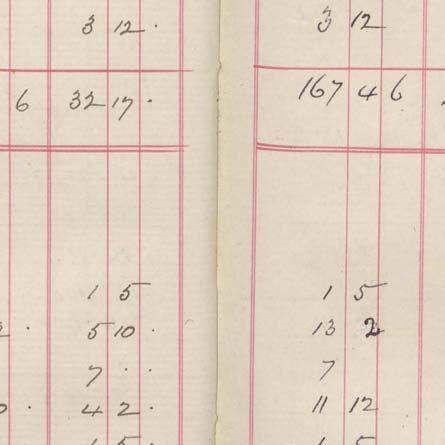 3 12 · 3 12
6 32 17 · 167 4 6
1 5 1 5
· 5 10 · 13 2
7 · · 7
· 4 2 · 11 12
1 5 1 5